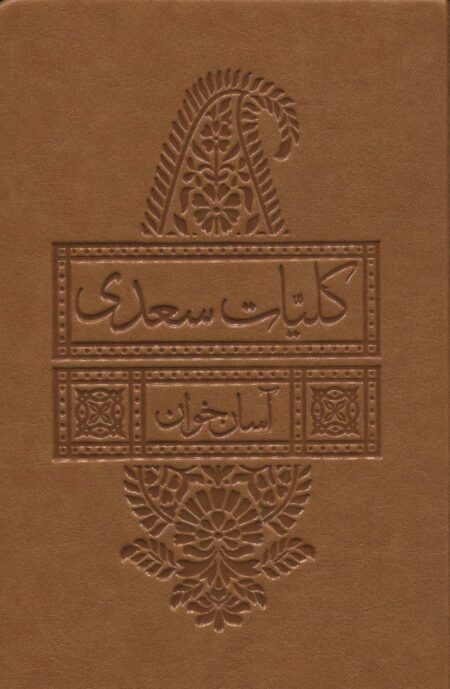 کلیّات سعدی
آسان‌خوان